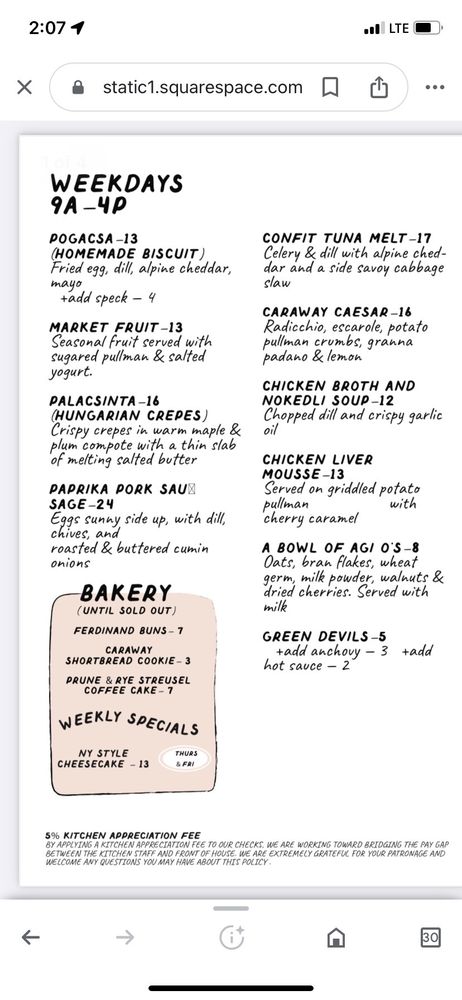 2:07
LTE
static1.squarespace.com
1 of 4
WEEKDAYS
9A–4P
POGACSA–13
(HOMEMADE BISCUIT)
Fried egg, dill, alpine cheddar,
mayo
+add speck – 4
MARKET FRUIT–13
Seasonal fruit served with
sugared pullman & salted
yogurt.
PALACSINTA–16
(HUNGARIAN CREPES)
Crispy crepes in warm maple &
plum compote with a thin slab
of melting salted butter
PAPRIKA PORK SAU
SAGE–24
Eggs sunny side up, with dill,
chives, and
roasted & buttered cumin
onions
BAKERY
(UNTIL SOLD OUT)
FERDINAND BUNS– 7
CARAWAY
SHORTBREAD COOKIE– 3
PRUNE & RYE STREUSEL
COFFEE CAKE– 7
WEEKLY SPECIALS
NY STYLE
CHEESECAKE – 13
THURS
& FRI
CONFIT TUNA MELT–17
Celery & dill with alpine ched-
dar and a side savoy cabbage
slaw
CARAWAY CAESAR–16
Radicchio, escarole, potato
pullman crumbs, granna
padano & lemon
CHICKEN BROTH AND
NOKEDLI SOUP–12
Chopped dill and crispy garlic
oil
CHICKEN LIVER
MOUSSE–13
Served on griddled potato
pullman with
cherry caramel
A BOWL OF AGI O'S–8
Oats, bran flakes, wheat
germ, milk powder, walnuts &
dried cherries. Served with
milk
GREEN DEVILS–5
+add anchovy – 3 +add
hot sauce – 2
5% KITCHEN APPRECIATION FEE
BY APPLYING A KITCHEN APPRECIATION FEE TO OUR CHECKS, WE ARE WORKING TOWARD BRIDGING THE PAY GAP
BETWEEN THE KITCHEN STAFF AND FRONT OF HOUSE. WE ARE EXTREMELY GRATEFUL FOR YOUR PATRONAGE AND
WELCOME ANY QUESTIONS YOU MAY HAVE ABOUT THIS POLICY.
30